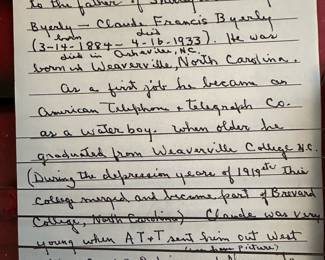 to the father of
Byerly — Claude Francis Byerly
born died
(3-14-1884 — 4-16-1933). He was
died in Asheville, N.C.
born in Weaverville, North Carolina.
As a first job he became an
American Telephone & Telegraph Co.
as a water boy. When older he
graduated from Weaverville College N.C.
(During the depression years of 1919 etc this
college merged and became part of Brevard
College, North Carolina) Claude was very
young when AT&T sent him out West
(see horse picture)